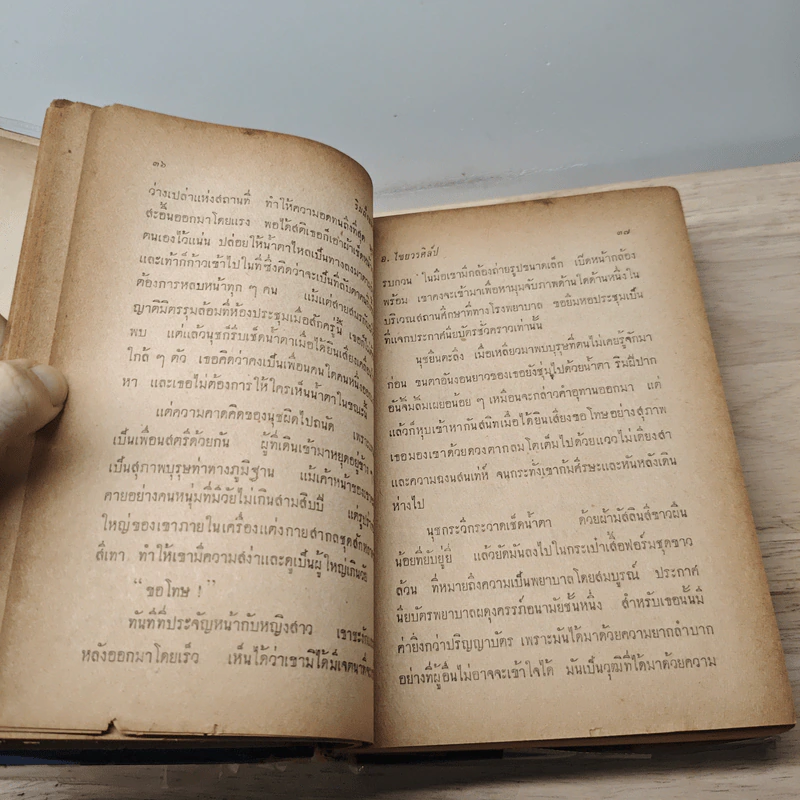 ๓๖
ว่างเปล่าแห่งสถานที่ ทำให้ความอดทนถึงที่สุด
สะอื้นออกมาโดยแรง พอได้สติเธอก็เอาผ้าเช็ดหน้า
ตนเองไว้แน่น ปล่อยให้น้ำตาไหลเป็นทางลงมา
และเท้าก็ก้าวเข้าไปในที่ซึ่งคิดว่าจะเป็นที่ลับตาคน
ต้องการหลบหน้าทุก ๆ คน แม้แต่สาย
ญาติมิตรรุมล้อมที่ห้องประชุมเมื่อสักครู่นี้ เธอก็ไม่
พบ แต่แล้วนุชก็รีบเช็ดน้ำตาเมื่อได้ยินเสียง
ใกล้ ๆ ตัว เธอคิดว่าคงเป็นเพื่อนคนใดคนหนึ่ง
หา และเธอไม่ต้องการให้ใครเห็นน้ำตาในขณะนี้
แต่ความคาดคิดของนุชผิดไปถนัด
เป็นเพื่อนสตรีด้วยกัน ผู้ที่เดินเข้ามาหยุดอยู่
เป็นสุภาพบุรุษท่าทางภูมิฐาน แม้เค้าหน้าของ
คายอย่างคนหนุ่มที่มีวัยไม่เกินสามสิบปี แต่รูป
ใหญ่ของเขาภายในเครื่องแต่งกายสากลชุดสัก
สีเทา ทำให้เขามีความสง่าและดูเป็นผู้ใหญ่เกินวัย
“ขอโทษ !”
ทันทีที่ประจัญหน้ากับหญิงสาว
หลังออกมาโดยเร็ว เห็นได้ว่าเขามิได้มีเจตนาที่จะ
อ. ไชยวรศิลป์ ๓๗
รบกวน ในมือเขามีกล้องถ่ายรูปขนาดเล็ก เปิดหน้ากล้อง
พร้อม เขาคงจะเข้ามาเพื่อหามุมจับภาพด้านใดด้านหนึ่งใน
บริเวณสถานศึกษาที่ทางโรงพยาบาล ขอยืมหอประชุมเป็น
ที่แจกประกาศนียบัตรชั่วคราวเท่านั้น
นุชยืนตะลึง เมื่อเหลียวมาพบบุรุษที่ตนไม่เคยรู้จักมา
ก่อน ขนตาอันงอนยาวของเธอยังชุ่มไปด้วยน้ำตา ริมฝีปาก
อันจิ้มลิ้มเผยอน้อย ๆ เหมือนจะกล่าวคำอุทานออกมา แต่
แล้วก็หุบเข้าหากันสนิทเมื่อได้ยินเสียงขอโทษอย่างสุภาพ
เธอมองเขาด้วยดวงตากลมโตเต็มไปด้วยแววไม่เดียงสา
และความฉงนสนเท่ห์ จนกระทั่งเขาก้มศีรษะและหันหลังเดิน
ห่างไป
นุชกระวีกระวาดเช็ดน้ำตา ด้วยผ้ามัสลินสีขาวผืน
น้อยที่ยับยู่ยี่ แล้วยัดมันลงไปในกระเป๋าเสื้อฟอร์มชุดขาว
ล้วน ที่หมายถึงความเป็นพยาบาลโดยสมบูรณ์ ประกาศ
นียบัตรพยาบาลผดุงครรภ์อนามัยชั้นหนึ่ง สำหรับเธอนั้นมี
ค่ายิ่งกว่าปริญญาบัตร เพราะมันได้มาด้วยความยากลำบาก
อย่างที่ผู้อื่นไม่อาจจะเข้าใจได้ มันเป็นวุฒิที่ได้มาด้วยความ